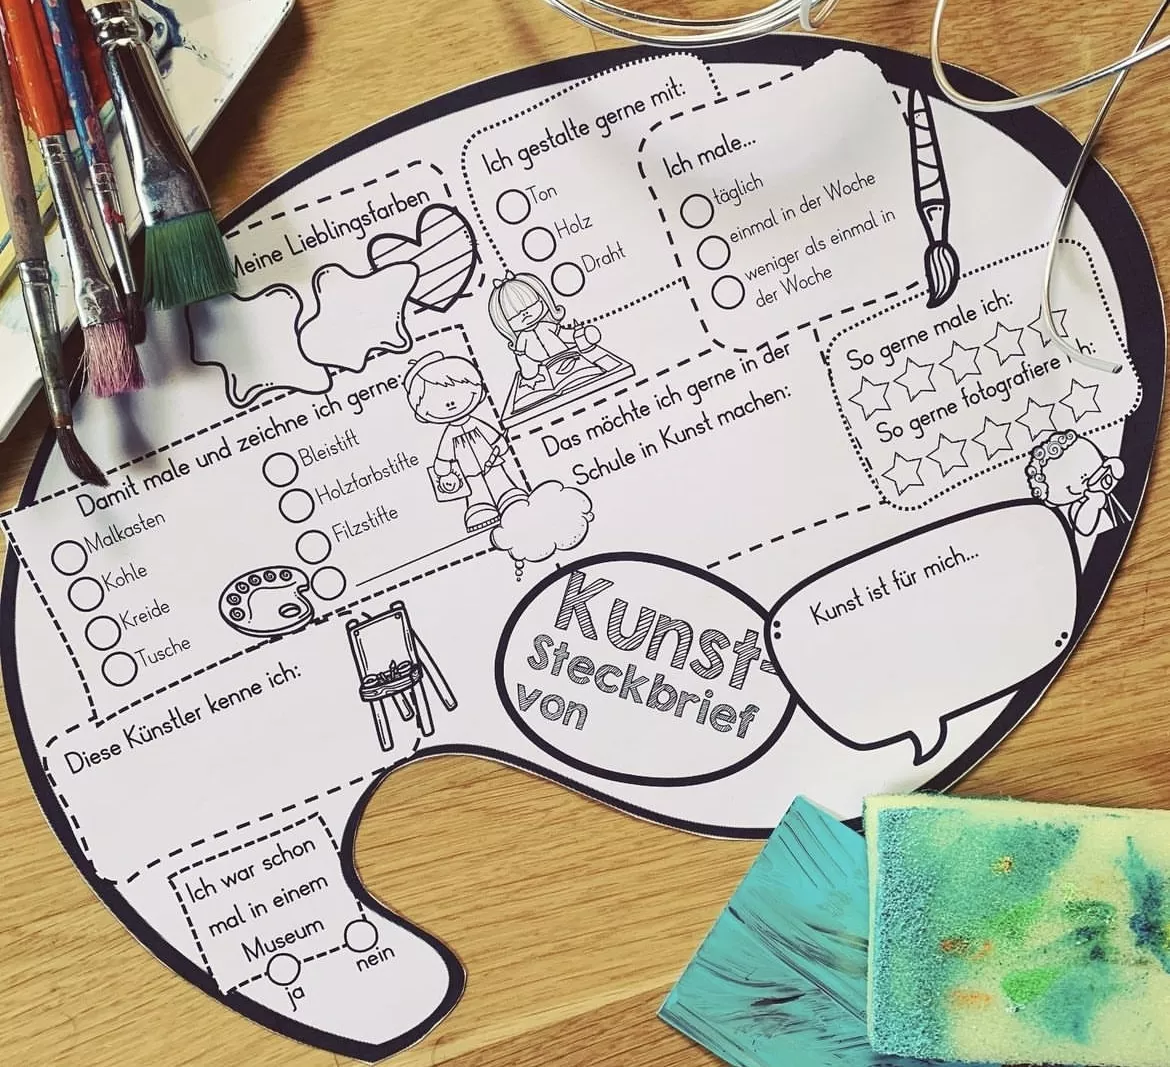 Meine Lieblingsfarben
Ich gestalte gerne mit:
Ton
Holz
Draht
Ich male...
täglich
einmal in der Woche
weniger als einmal in
der Woche
So gerne male ich:
So gerne fotografiere ich:
Damit male und zeichne ich gerne:
Malkasten
Kohle
Kreide
Tusche
Bleistift
Holzfarbstifte
Filzstifte
Das möchte ich gerne in der
Schule in Kunst machen:
Kunst-
Steckbrief
von
Kunst ist für mich...
Diese Künstler kenne ich:
Ich war schon
mal in einem
Museum
ja
nein